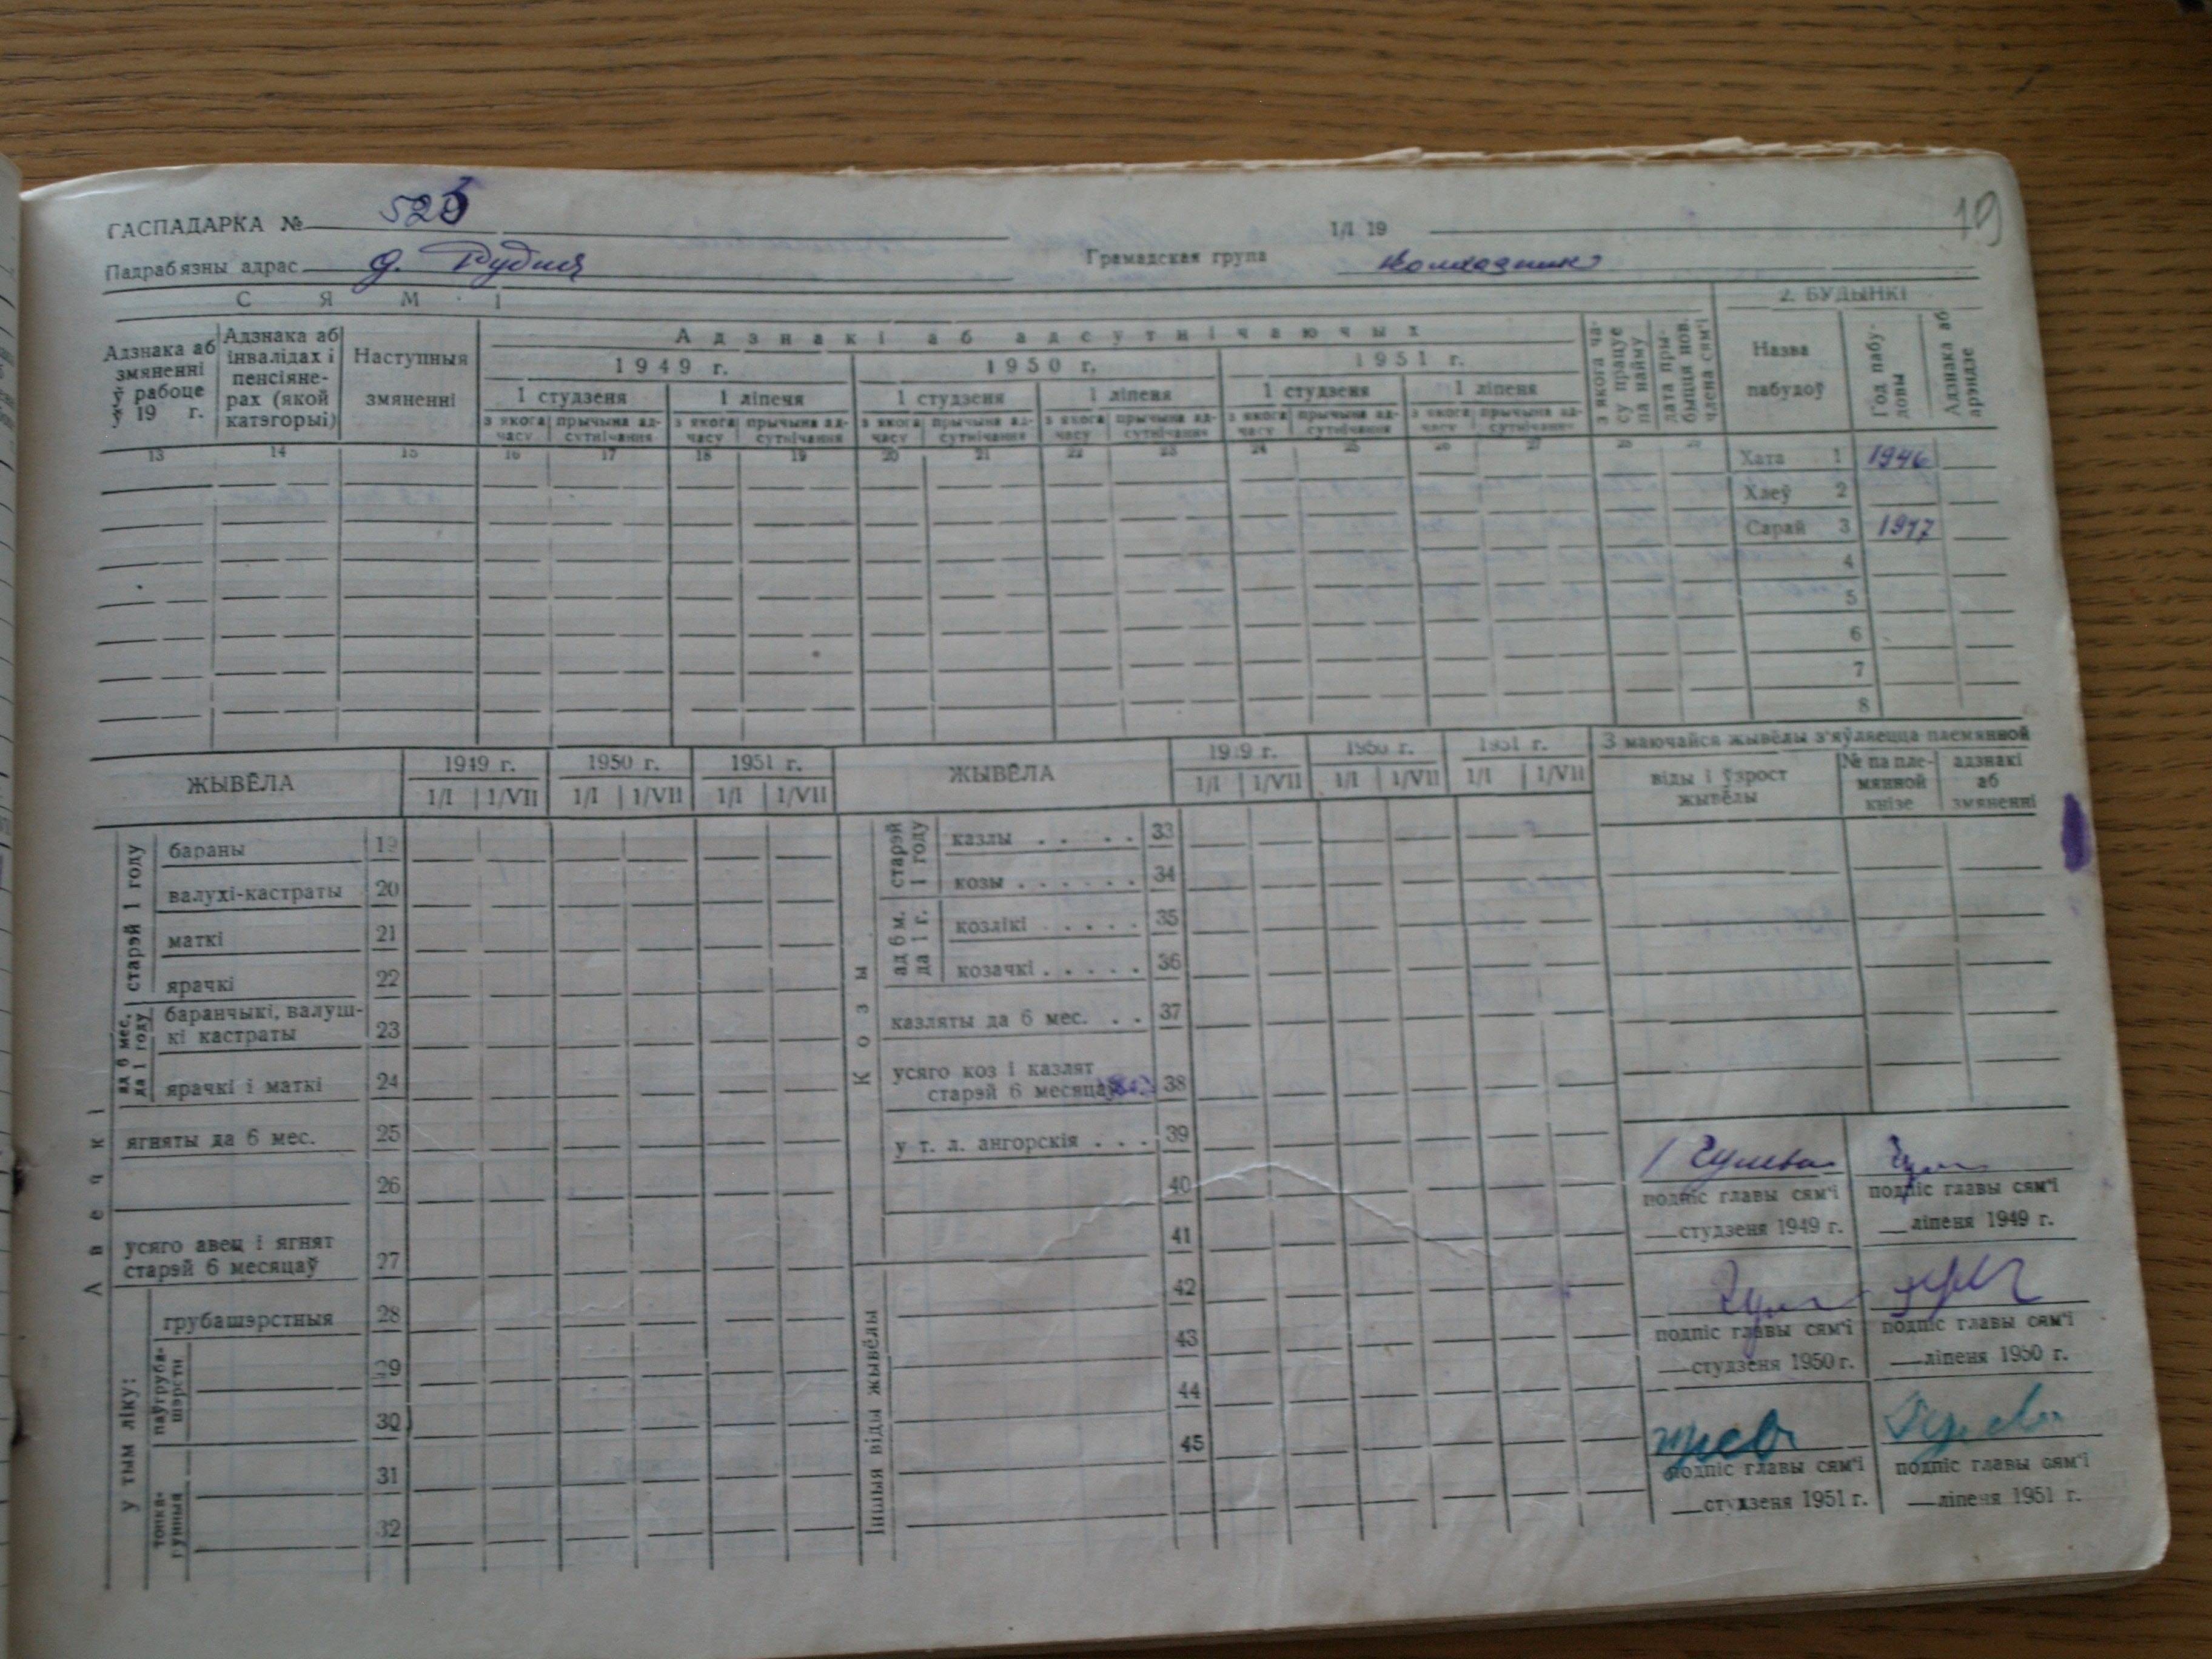 19
ГАСПАДАРКА № 523 1/I 19
Падрабязны адрас д. Рудня Грамадская група колхозник
СЯМ'І 2. БУДЫНКІ
Адзнака аб змяненні ў рабоце ў 19 г.
Адзнака аб інвалідах і пенсіяне-рах (якой катэгорыі)
Наступныя змяненні
Адзнакі аб адсутнічаючых
1949 г. 1950 г. 1951 г.
1 студзеня 1 ліпеня 1 студзеня 1 ліпеня 1 студзеня 1 ліпеня
з якога часу прычына ад-сутнічання з якога часу прычына ад-сутнічання з якога часу прычына ад-сутнічання з якога часу прычына ад-сутнічання з якога часу прычына ад-сутнічання з якога часу прычына ад-сутнічання
з якога ча-су працуе па найму
дата пры-быцця нов. члена сям'і
Назва пабудоў
Год пабу-довы
Адзнака аб арэндзе
13 14 15 16 17 18 19 20 21 22 23 24 25 26 27 28 29
Хата 1 1946
Хлеў 2
Сарай 3 1947
4
5
6
7
8
ЖЫВЁЛА 1949 г. 1950 г. 1951 г. ЖЫВЁЛА 1949 г. 1950 г. 1951 г.
1/I 1/VII 1/I 1/VII 1/I 1/VII 1/I 1/VII 1/I 1/VII 1/I 1/VII
З маючайся жывёлы з'яўляецца племянной
віды і ўзрост жывёлы
№ па пле-мянной кнізе
адзнакі аб змяненні
Авечкі
старэй 1 году
бараны 19
валухі-кастраты 20
маткі 21
ярачкі 22
ад 6 мес. да 1 году
баранчыкі, валуш-
кі кастраты 23
ярачкі і маткі 24
ягняты да 6 мес. 25
26
усяго авец і ягнят
старэй 6 месяцаў 27
у тым ліку:
грубашэрстныя 28
паўгруба-шэрсти
29
30
тонка-рунныя
31
32
Козы
старэй 1 году
казлы 33
козы 34
ад 6 м. да 1 г.
козлікі 35
козачкі 36
казляты да 6 мес. 37
усяго коз і казлят
старэй 6 месяцаў 38
у т. л. ангорскія 39
40
41
Іншыя віды жывёлы
42
43
44
45
подпіс главы сям'і подпіс главы сям'і
студзеня 1949 г. ліпеня 1949 г.
подпіс главы сям'і подпіс главы сям'і
студзеня 1950 г. ліпеня 1950 г.
подпіс главы сям'і подпіс главы сям'і
студзеня 1951 г. ліпеня 1951 г.